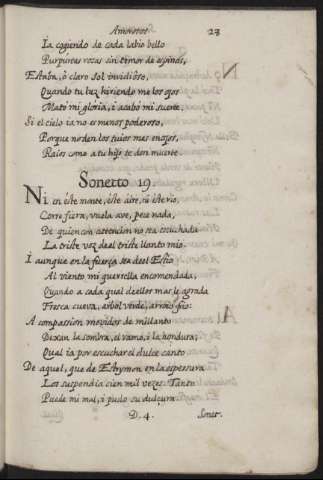 Amorosos. 23
Ia cogiendo de cada labio bello
Purpureas rosas sin temor de espinas,
Estaua, ô claro sol invidioso,
Quando tu luz hiriendo me los ojos
Matô mi gloria, i acabô mi suerte,
Si el cielo ia no es menos poderoso,
Porque no den los tuios mas enojos,
Raios como a tu hijo te den muerte
Sonetto 19.
Ni en éste monte, éste aire, ni éste rio,
Corre fiera, vuela ave, pece nada,
De quien con attencion no sea escuchada
La triste voz del triste llanto mio.
I aunque en la fuerça sea del Estio
Al viento mi querella encomendada,
Quando a cada qual dellos mas le agrada
Fresca cueva, arbol verde, arroio frio:
A compassion movidos de mi llanto
Dexan la sombra, el ramo, i la hondura;
Qual ia por escuchar el dulce canto
De aquel, que de Estrymon en la espesura
Los suspendia cien mil vezes. Tanto
Puede mi mal, i pudo su dulçura.
D. 4. Sonet.